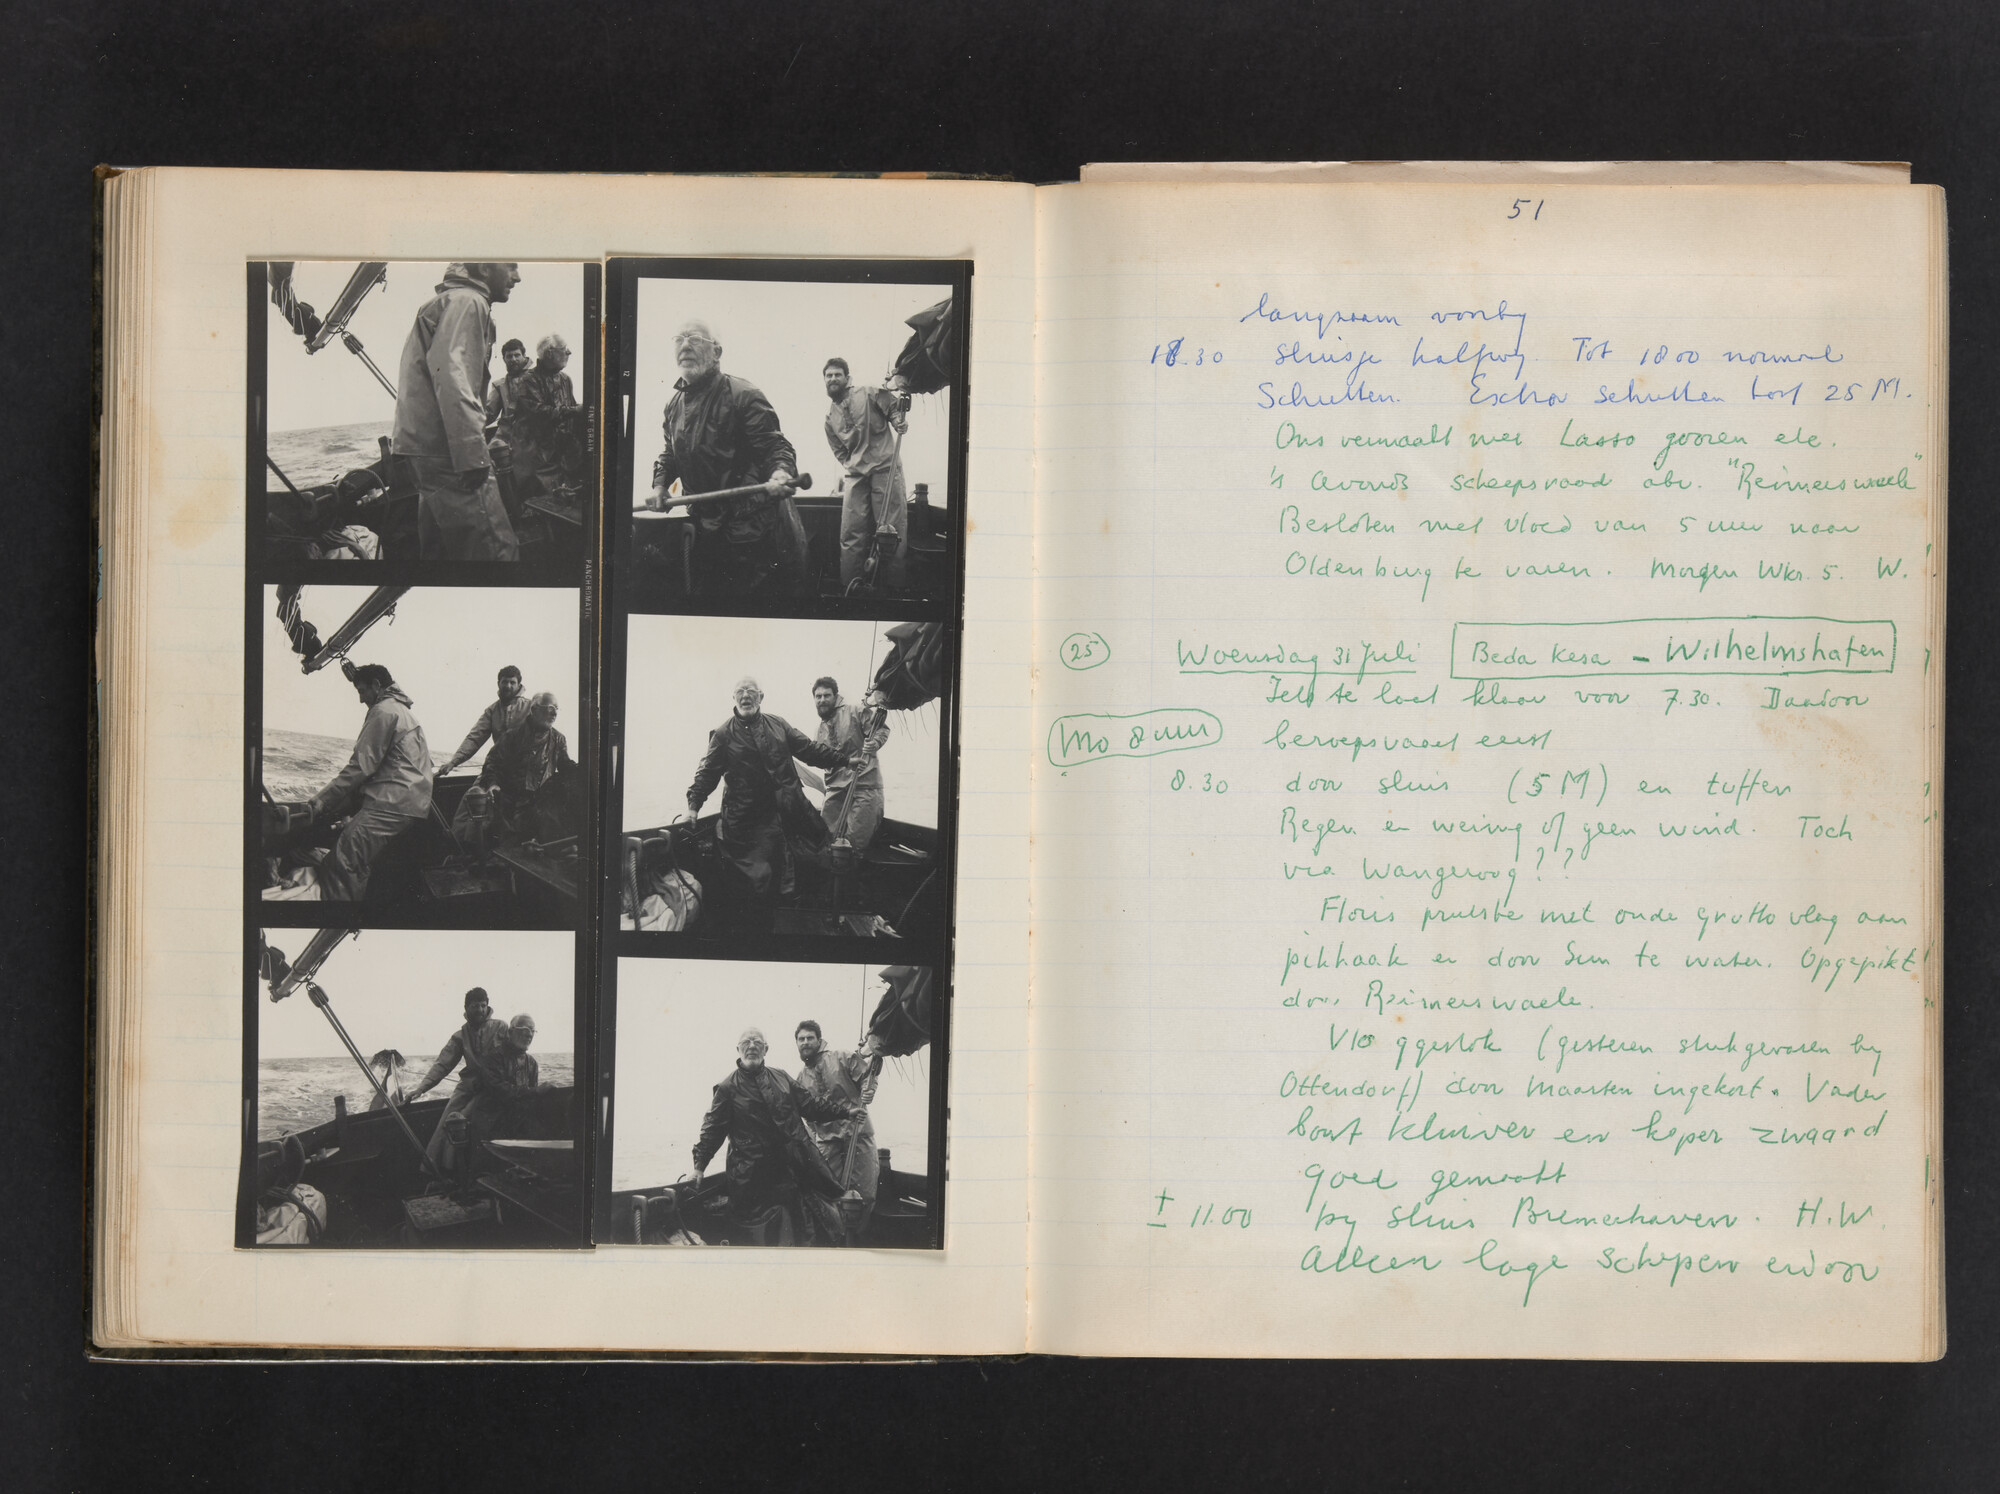 51
langzaam voorby
18.30 sluisje halfweg. Tot 1800 normaal
Schutten. Extra schutten kost 25 M.
Ons vermaakt met Lasso gooien etc.
's avonds scheepsraad abv. "Reimerswaele"
Besloten met vloed van 5 uur naar
Oldenburg te varen. Morgen Wkr. 5. W.
25 Woensdag 31 Juli Beda Kesa - Wilhelmshafen
Iets te laat klaar voor 7.30. Daardoor
Mo 8 uur beroepsvaart eerst
8.30 door sluis (5 M) en tuffen
Regen en weinig of geen wind. Toch
via Wangeroog??
Floris prutste met oude grutto vlag aan
pikhaak en door Sun te water. Opgepikt
door Reimerswaele.
Vlaggestok (gisteren stukgevaren by
Ottendorf) door Maarten ingekort. Vader
bout kluiver en koper zwaard
goed gemaakt
± 11.00 by sluis Bremerhaven. H.W.
Alleen lage schepen erdoor
FINE GRAIN
PANCHROMATIC
12
11